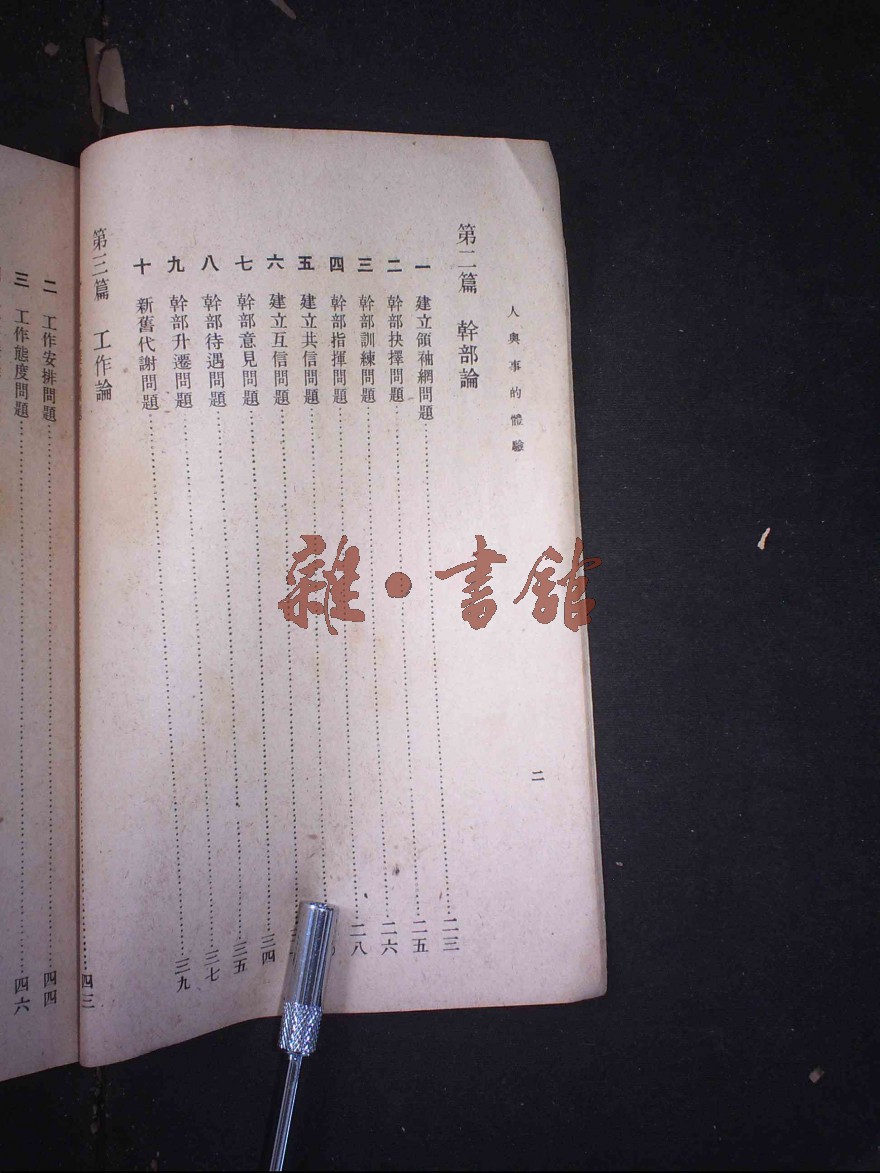 人與事的體驗
二
第二篇 幹部論
一 建立領袖網問題……二三
二 幹部抉擇問題……二五
三 幹部訓練問題……二六
四 幹部指揮問題……二八
五 建立共信問題……
六 建立互信問題……
七 幹部意見問題……三四
八 幹部待遇問題……三五
九 幹部升遷問題……三七
十 新舊代謝問題……三九
第三篇 工作論
……四三
二 工作安排問題……四四
三 工作態度問題……四六
雜·書館